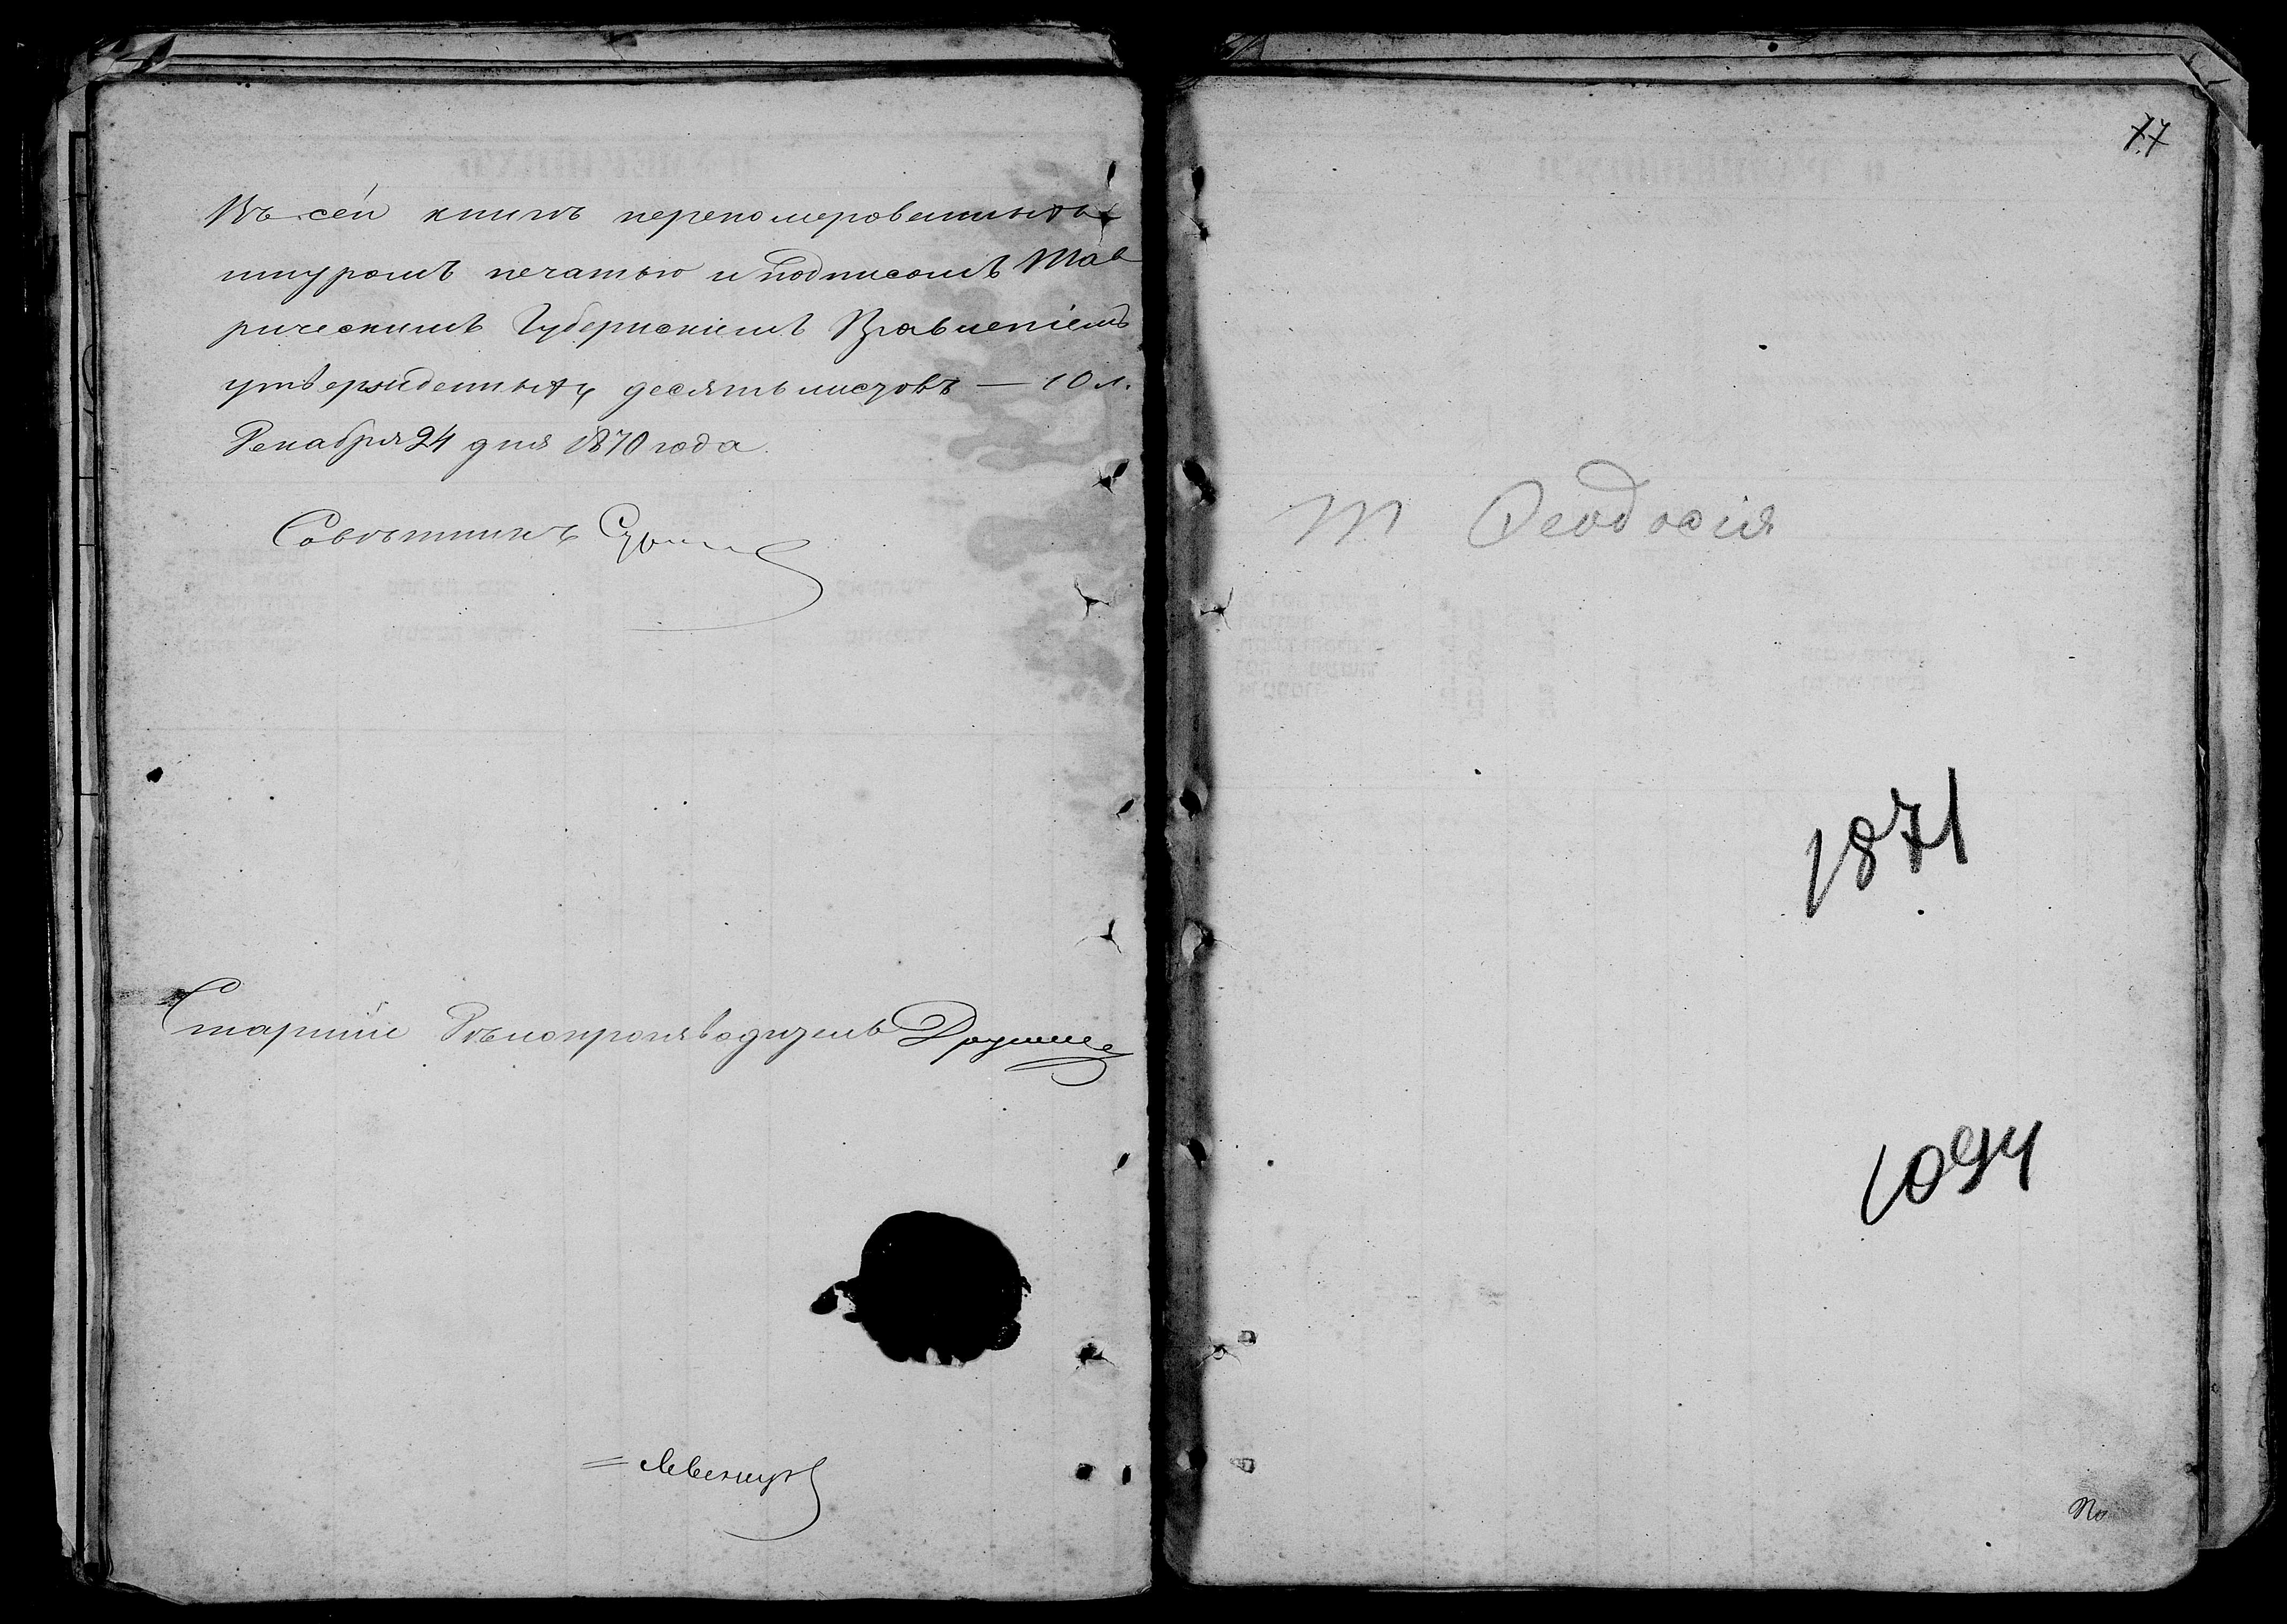 Въ сей книгѣ перенумерованныхъ
шнуромъ печатью и подписомъ Тав
рическимъ Губернскимъ Правленіемъ
утвержденныхъ десять листовъ — 10 л.
Декабря 24 дня 1870 года.
Совѣтникъ
Старшій Дѣлопроизводитель
77
М Феодосія
1871
1094
No